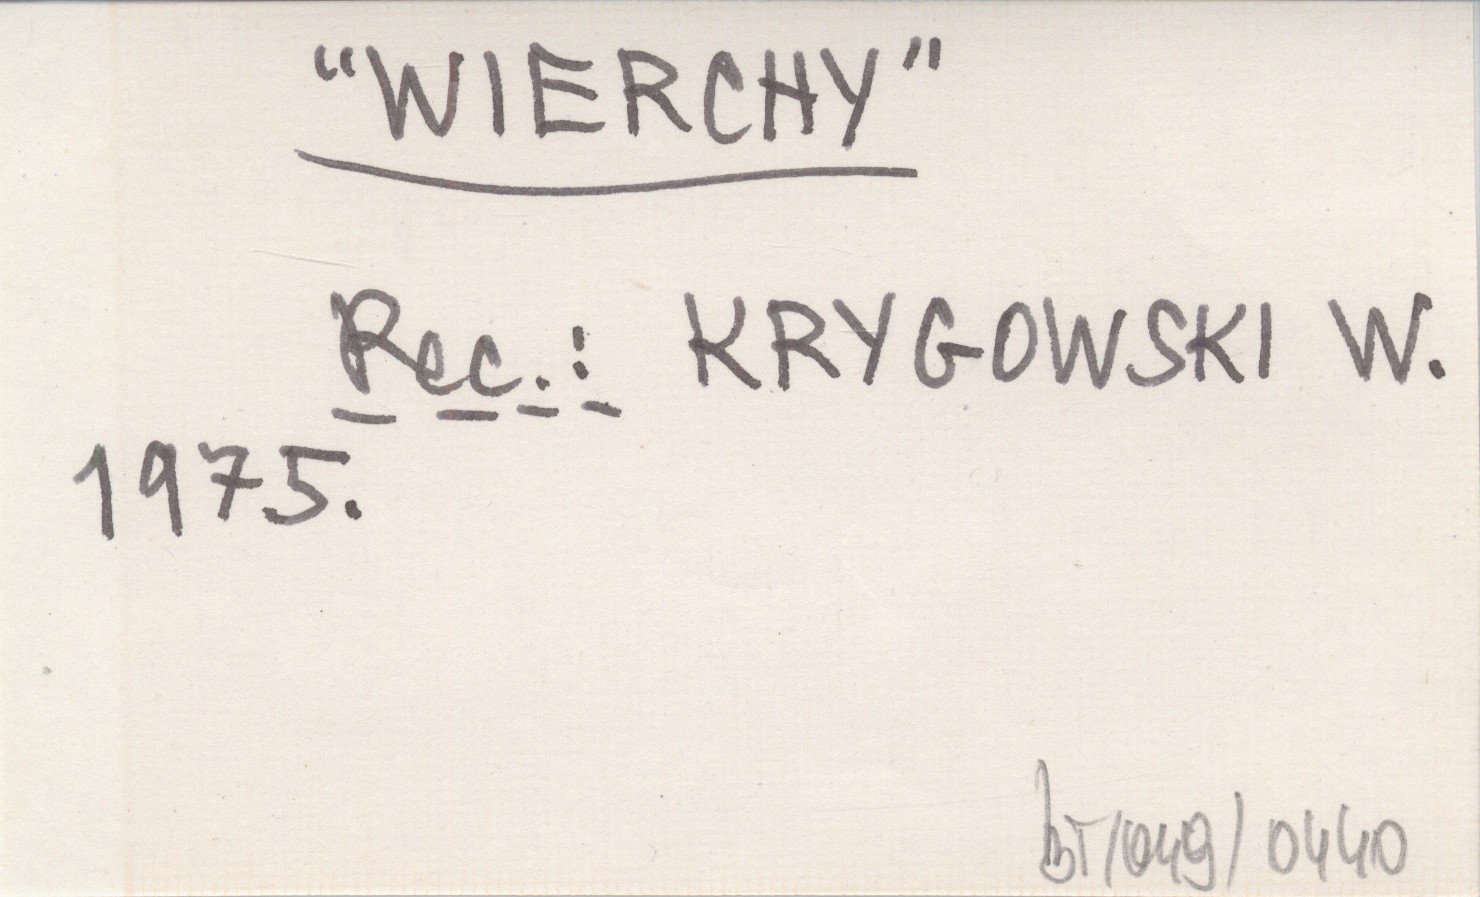 “WIERCHY”
Rec.: KRYGOWSKI W.
1975.
BT/049/0440